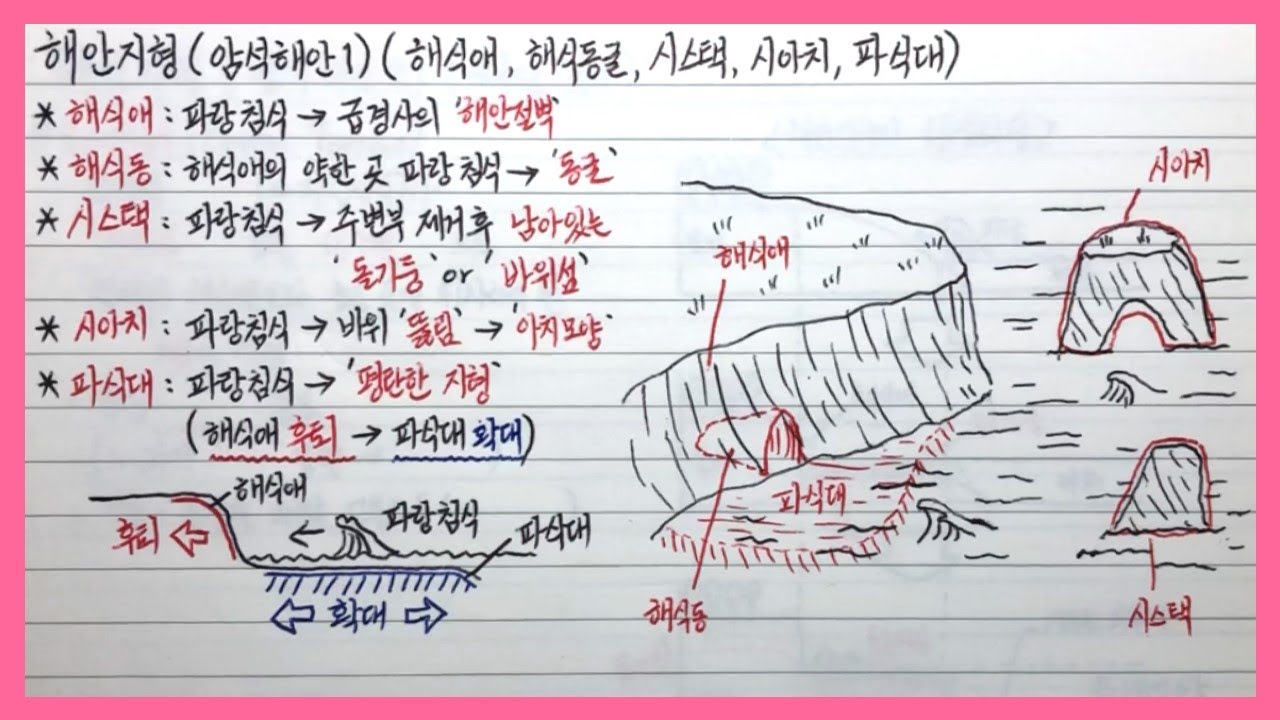 해안지형 (암석해안1) (해식애, 해식동굴, 시스택, 시아치, 파식대)
* 해식애 : 파랑침식 → 급경사의 '해안절벽'
* 해식동 : 해식애의 약한 곳 파랑침식 → '동굴'
* 시스택 : 파랑침식 → 주변부 제거후 남아있는
'돌기둥' or '바위섬'
* 시아치 : 파랑침식 → 바위 '뚫림' → '아치모양'
* 파식대 : 파랑침식 → '평탄한 지형'
(해식애 후퇴 → 파식대 확대)
해식애
후퇴
파랑침식
파식대
확대
해식애
시아치
파식대
해식동
시스택